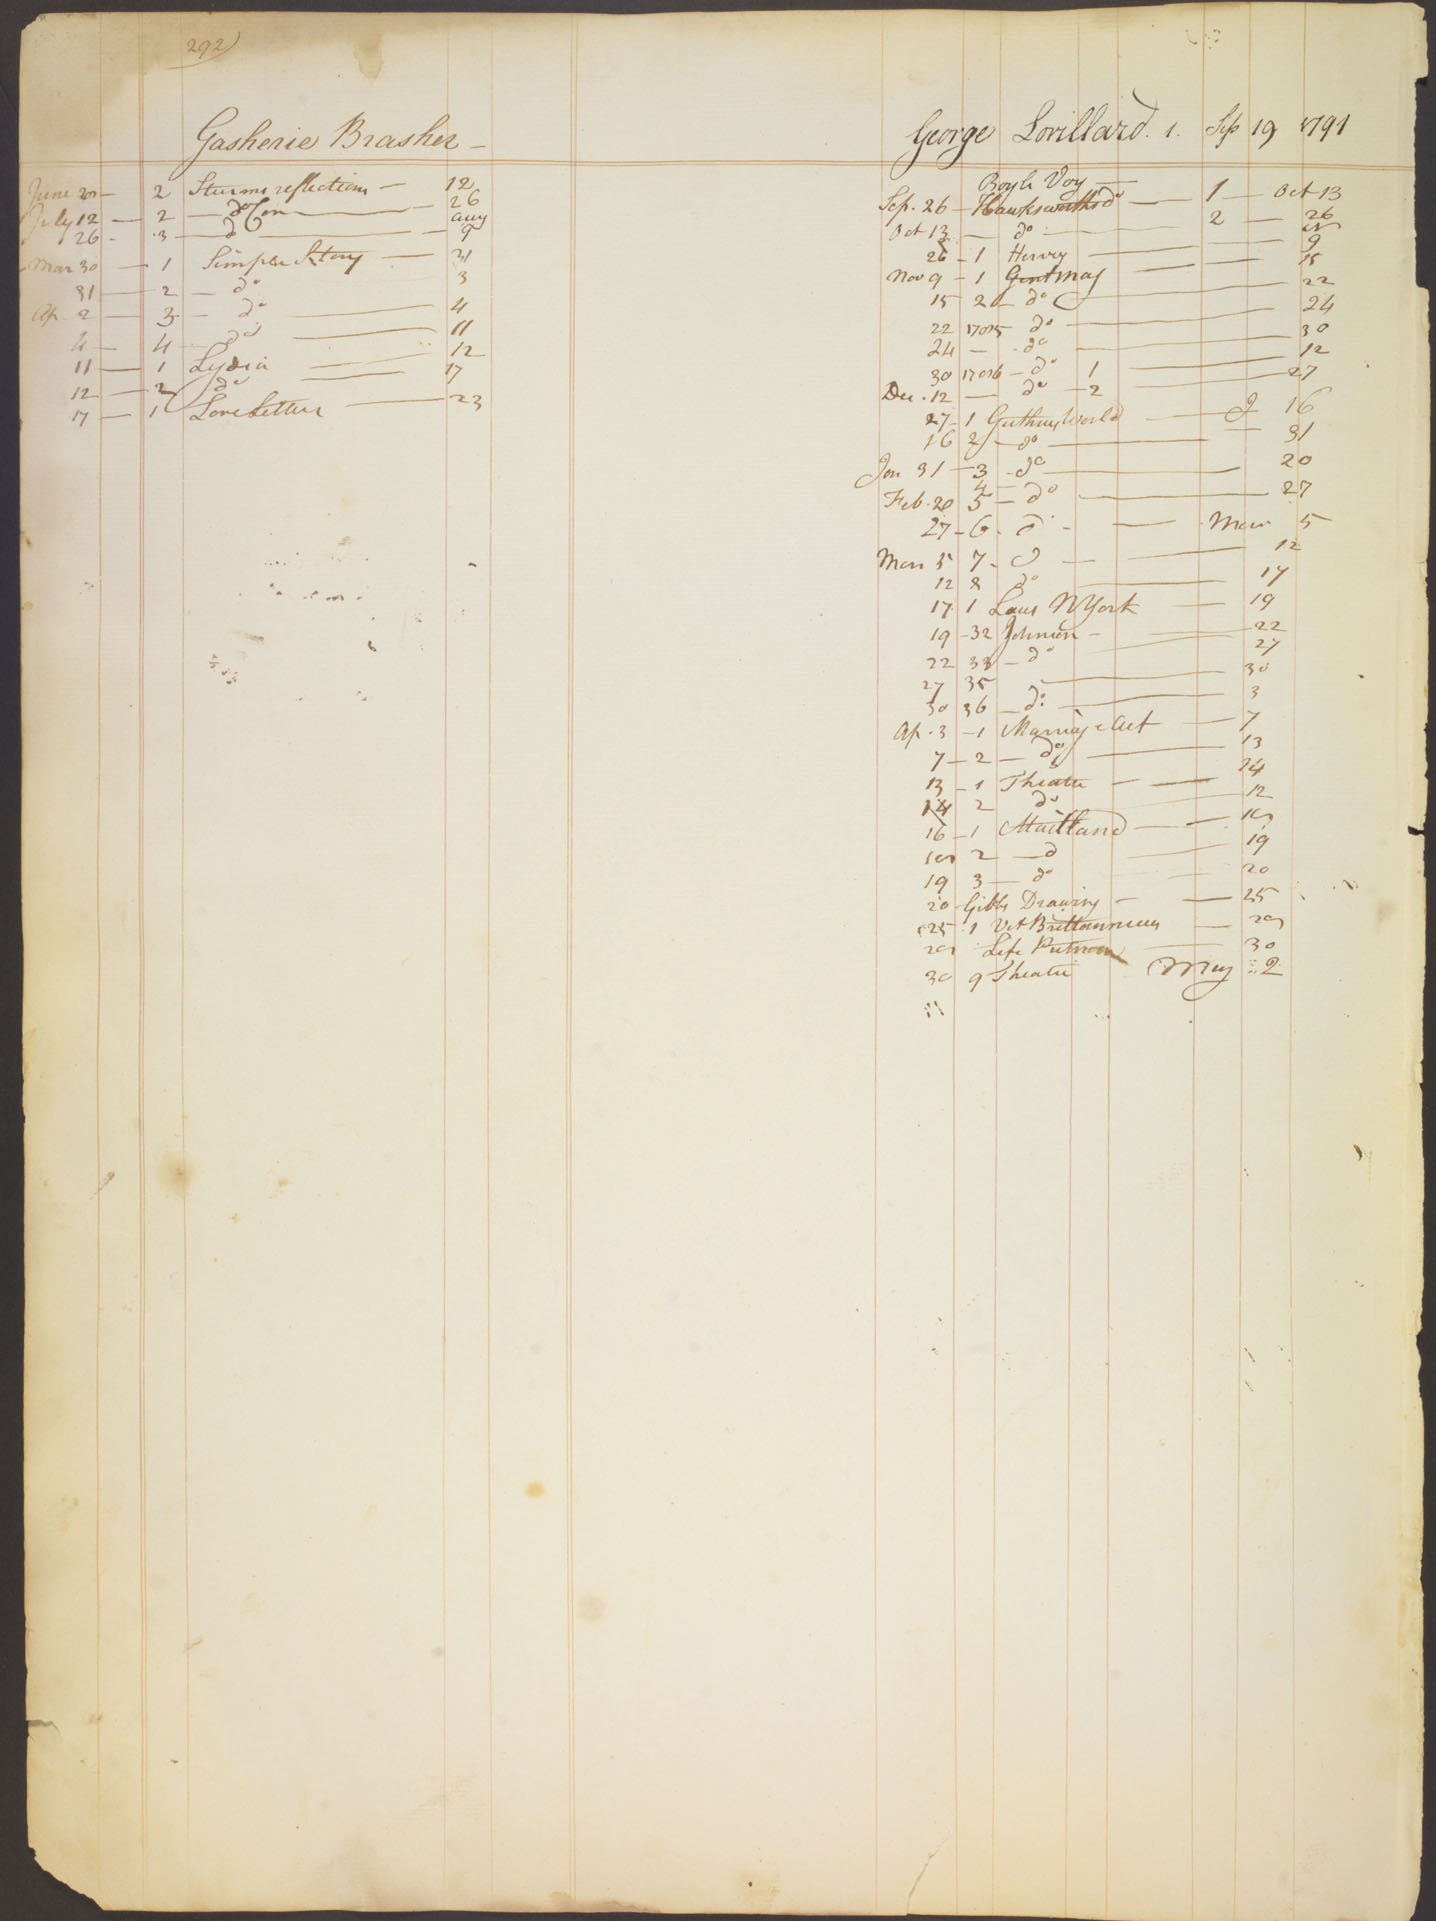 292)
Gasherie Brasher —
June 20 — 2 Sturms reflections — 12
July 12 — 2 — do — 26
aug
26 - 3 — do — 9
Mar 30 — 1 Simple Story — 31
31 — 2 — do 3
Ap. 2 — 3 — do — 4
4 — 4 — do — 11
11 — 1 Lydia — 12
12 — 2 do — 17
17 — 1 Love Letters — 23
George Lorillard. 1. Sep 19 1791
Boyle Voy —
Sep. 26 — Hawksworths do — 1 — Oct 13
Oct 13 — do — 2 — 26
26 — 1 Henry — 9
Nov 9 — 1 Gent Mag — 15
15 2 — do — 22
22 do — 24
24 — do — 30
30 — do 1 — 12
Dec. 12 — do — 2 — 27
27 — 1 Guthrys World — J 16
16 2 — do — 31
Jan 31 — 3 - do — 20
4
Feb. 20 5 — do — 27
27 - 6 - do - — Mar 5
Mar 5 7 - do — 12
12 8 do — 17
17 1 Laws N York — 19
19 - 32 Johnson - — 22
22 33 — do — 27
27 35 — 30
30 36 — do — 3
Ap. 3 — 1 Marriage Act — 7
7 — 2 — do — 13
13 — 1 Theatre — 14
14 2 do — 12
16 — 1 Maitland —
2 — do — 19
19 3 — do — 20
20 Gibbs Drawing — 25
25 1 Vet Brittannicus —
Life Putnam — 30
30 9 Theatre May 2